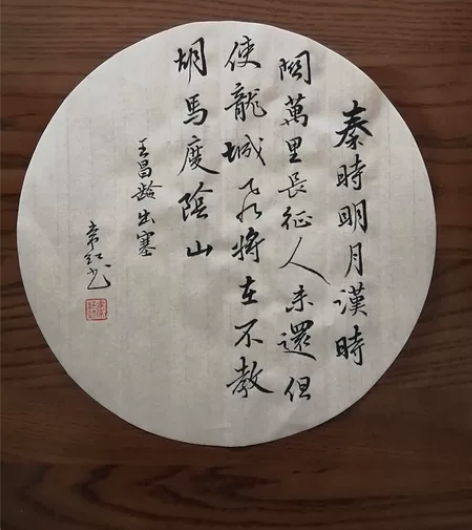 秦時明月漢時
關萬里長征人未還但
使龍城飛將在不教
胡馬度陰山
王昌齡出塞